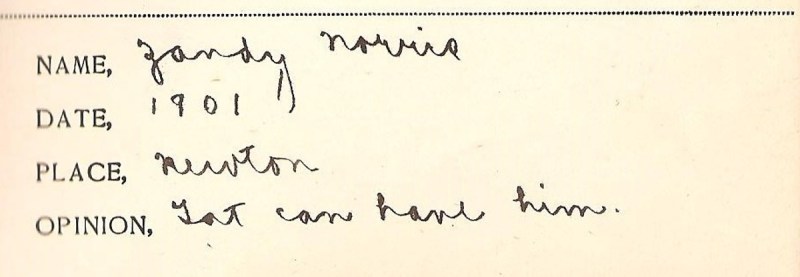 NAME, Zandy Norris
DATE, 1901
PLACE, Newton
OPINION, Tot can have him.